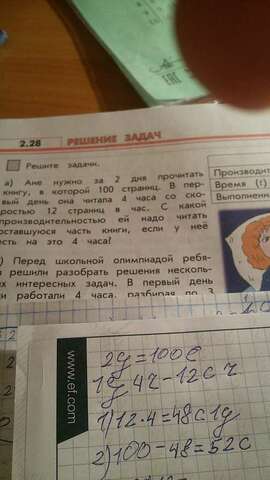 2.28 РЕШЕНИЕ ЗАДАЧ
Решите задачи.
а) Ане нужно за 2 дня прочитать
книгу, в которой 100 страниц. В пер-
вый день она читала 4 часа со ско-
ростью 12 страниц в час. С какой
производительностью ей надо читать
оставшуюся часть книги, если у неё
есть на это 4 часа?
) Перед школьной олимпиадой ребя-
решили разобрать решения несколь-
интересных задач. В первый день
и работали 4 часа, разбирая по 3
Производит
Время (t)
Выполнен
www.ef.com
2д=100с
1д 4ч-12с ч
1) 12·4=48с 1д
2) 100-48=52с